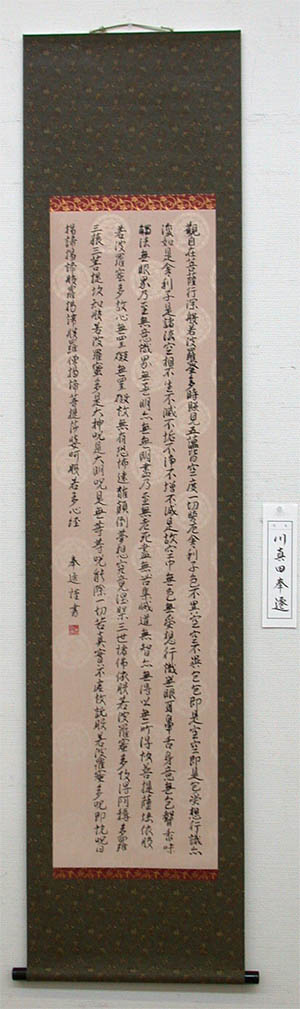 觀自在菩薩行深般若波羅蜜多時照見五蘊皆空度一切苦厄舍利子色不異空空不異色色即是空空即是色受想行識亦
復如是舍利子是諸法空相不生不滅不垢不淨不增不減是故空中無色無受想行識無眼耳鼻舌身意無色聲香味
觸法無眼界乃至無意識界無無明亦無無明盡乃至無老死盡無苦集滅道無智亦無得以無所得故菩提薩埵依般
若波羅蜜多故心無罣礙無罣礙故無有恐怖遠離顛倒夢想究竟涅槃三世諸佛依般若波羅蜜多故得阿耨多羅
三藐三菩提故知般若波羅蜜多是大神呪是大明呪是無等等呪能除一切苦真實不虛故說般若波羅蜜多呪即說呪曰
揭諦揭諦般羅揭諦般羅僧揭諦菩提莎婆訶般若多心経
奉遂謹書
川真田奉遂